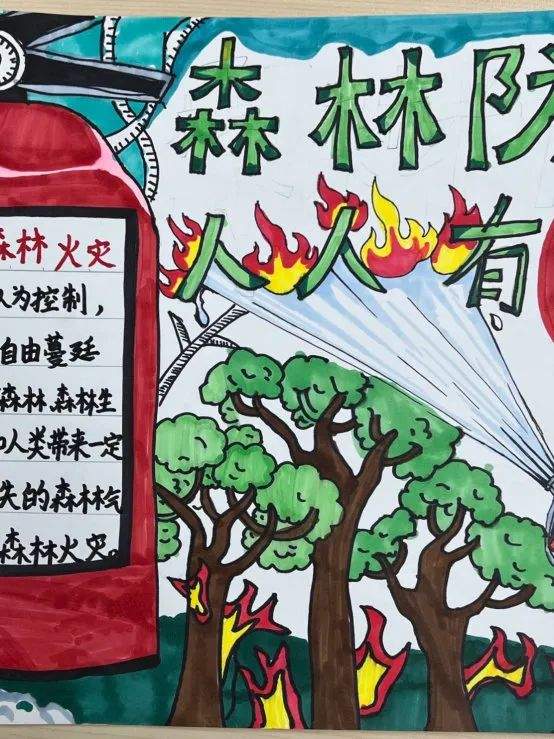 森林防
人人有
森林火灾
人为控制，
自由蔓延
森林,森林生
和人类带来一定
失的森林气
森林火灾。